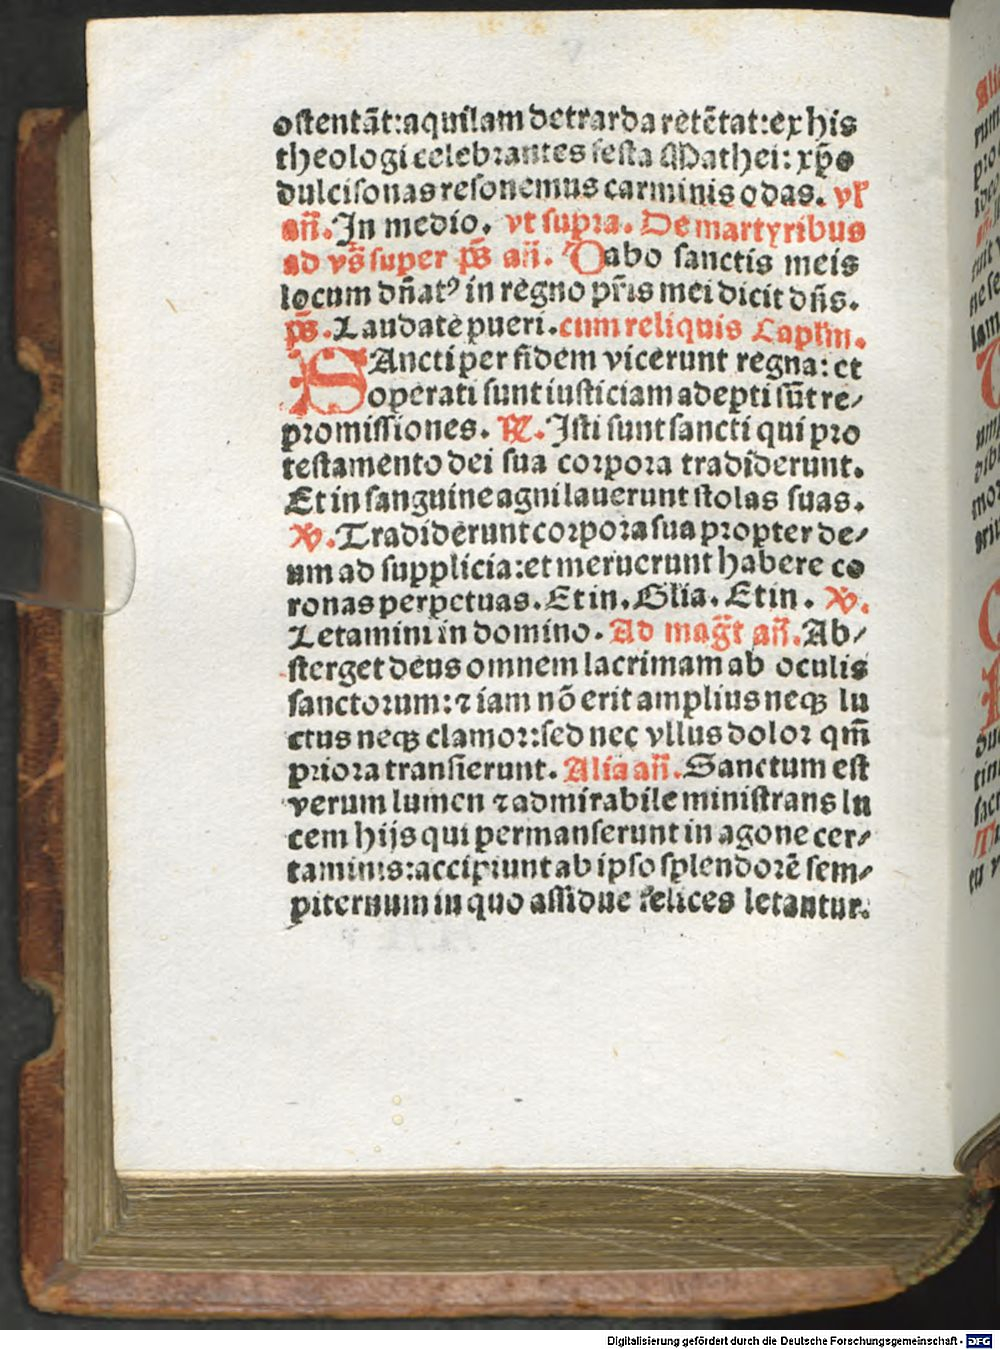 ostentãt:aquilam detrarda retẽtat:ex his
theologi celebrantes festa Mathei: xp̃o
dulcisonas resonemus carminis odas. vľ
añ. In medio. vt supra. De martyribus
ad vs̃ super ps̃ añ. Dabo sanctis meis
locum dñatꝰ in regno pr̃is mei dicit dñs.
ps̃. Laudate pueri. cum reliquis Caplm̃.
SAncti per fidem vicerunt regna: et
operati sunt iusticiam adepti sũt re/
promissiones. ℟. Isti sunt sancti qui pro
testamento dei sua corpora tradiderunt.
Et in sanguine agni lauerunt stolas suas.
℣. Tradiderunt corpora sua propter de/
um ad supplicia: et meruerunt habere co
ronas perpetuas. Et in. Glia. Et in. ℣.
Letamini in domino. Ad mag̃t añ. Ab/
sterget deus omnem lacrimam ab oculis
sanctorum: ⁊ iam nõ erit amplius neqꝫ lu
ctus neqꝫ clamor: sed nec vllus dolor qm̃
priora transierunt. Alia añ. Sanctum est
verum lumen ⁊ admirabile ministrans lu
cem hijs qui permanserunt in agone cer/
taminis: accipiunt ab ipso splendorẽ sem/
piternum in quo assidue felices letantur.
Digitalisierung gefördert durch die Deutsche Forschungsgemeinschaft - DFG